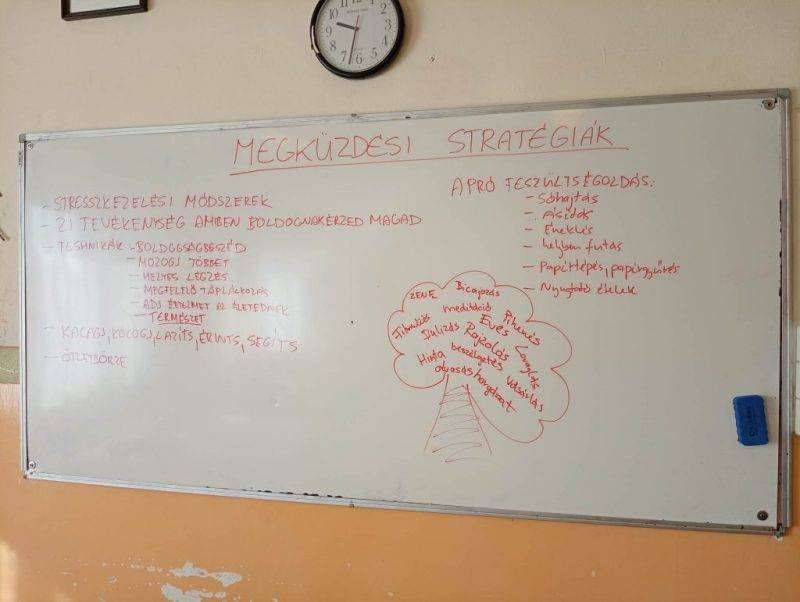 10 11 12 1 2 3 4 5 6 7 8 9
MEGKÜZDÉSI STRATÉGIÁK
- STRESSZKEZELÉSI MÓDSZEREK
- 21 TEVÉKENYSÉG AMIBEN BOLDOGNAK ÉRZED MAGAD
- TECHNIKÁK - BOLDOGSÁGBESZÉD
- MOZOGJ TÖBBET
- HELYES LÉGZÉS
- MEGFELELŐ TÁPLÁLKOZÁS
- ADJ ÉRTELMET AZ ÉLETEDNEK
- TERMÉSZET
- KACAGJ, KOCOGJ, LAZÍTS, ÉRINTS, SEGÍTS
- ÖTLETBÖRZE
APRÓ FESZÜLTSÉGOLDÁS:
- Sóhajtás
- Ásítás
- Éneklés
- helyben futás
- Papírtépés, papírgyűrés
- Nyugtató ételek
ZENE
Bicajozás
meditáció
Pihenés
Filmnézés
Evés
Lovaglás
Rajzolás
Hinta
beszélgetés
Vásárlás
olvasás
horgászat